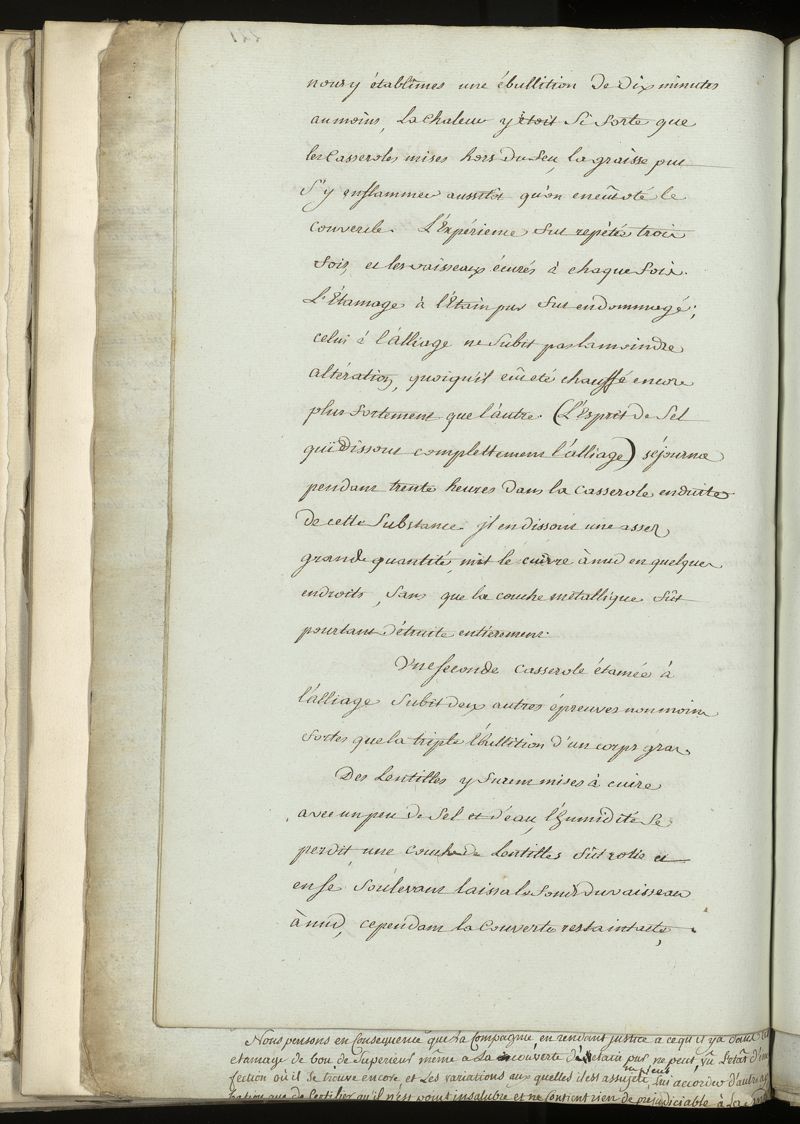 nous y établîmes une ébullition de dix minutes
au moins, la chaleur y étoit si forte que
les casseroles mises hors du feu, la graisse put
s'y enflammer aussitôt qu'on en eût oté le
couvercle. L'Expérience fut repétée trois
fois, et les vaisseaux écurés à chaque fois.
L'Etamage à l'Etain pur fut endommagé;
celui à l'Alliage ne subit pas la moindre
altération, quoiqu'il eût eté chauffé encore
plus fortement que l'autre. (L'Esprit de Sel
qui dissout complettement l'alliage) séjourna
pendant trente heures dans la casserole enduite
de cette substance. il en dissout une assez
grande quantité, mit le cuivre à nud en quelques
endroits, sans que la couche métallique fût
pourtant détruite entièrement.
Une seconde casserole étamée à
l'alliage subit deux autres épreuves non moins
fortes que la triple Ebullition d'un corps gras.
Des Lentilles y furent mises à cuire
avec un peu de sel et d'eau, l'humidité se
perdit, une couche de lentilles fût rotie et
en se soulevant laissa le fond du vaisseau
à nud, cependant la couverte resta intacte,
Nous pensons en Consequence que la Compagnie, en rendant justice a ce qu'il y a dans
etamage de bon de Superieur même a La couverte d'Etain pur, ne peut, vû l'etat d'
fection où il se trouve encore, et Les variations aux quelles il est assujeti, lui accorder d'autre
que de Certifier qu'il n'est point insalubre et ne Contient rien de prejudiciable à la